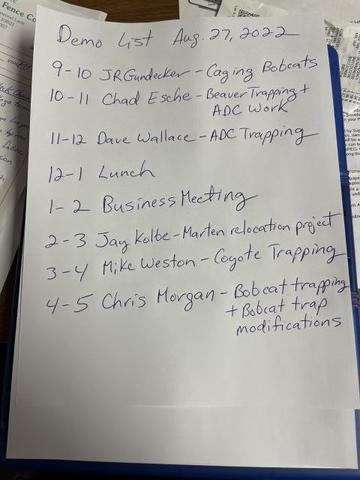 Fence Co
Demo List Aug. 27, 2022
9-10 JR Gundecker - Caging Bobcats
10-11 Chad Esche - Beaver Trapping +
ADC Work
11-12 Dave Wallace - ADC Trapping
12-1 Lunch
1-2 Business Meeting
2-3 Jay Kolbe - Marten relocation project
3-4 Mike Weston - Coyote Trapping
4-5 Chris Morgan - Bobcat trapping
+ Bobcat trap
modifications